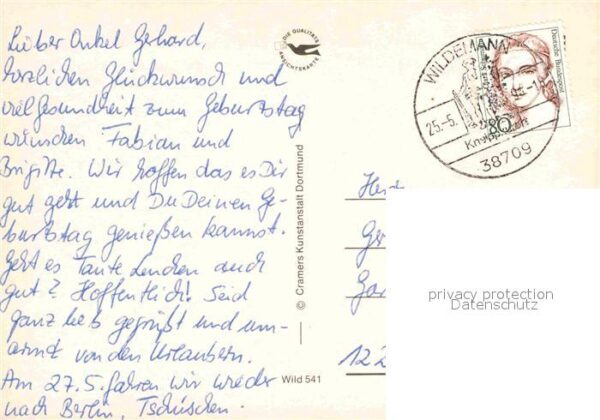 Lieber Onkel Gerhard,
herzlichen Glückwunsch und
viel Gesundheit zum Geburtstag
wünschen Fabian und
Brigitte. Wir hoffen das es Dir
gut geht und Du Deinen Ge-
burtstag genießen kannst.
Geht es Tante Lenchen auch
gut? Hoffentlich! Seid
ganz lieb gegrüßt und um-
armt von den Urlaubern.
Am 27.5. fahren wir wieder
nach Berlin, Tschüschen.
DIE QUALITÄTS
ANSICHTSKARTE
© Cramers Kunstanstalt Dortmund
Wild 541
WILDEMANN
25.-5.
38709
80
Deutsche Bundespost
122
privacy protection
Datenschutz